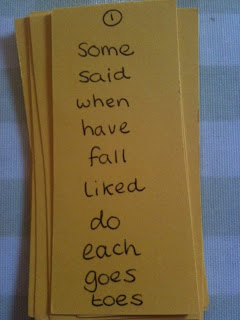 1
some
said
when
have
fall
liked
do
each
goes
toes